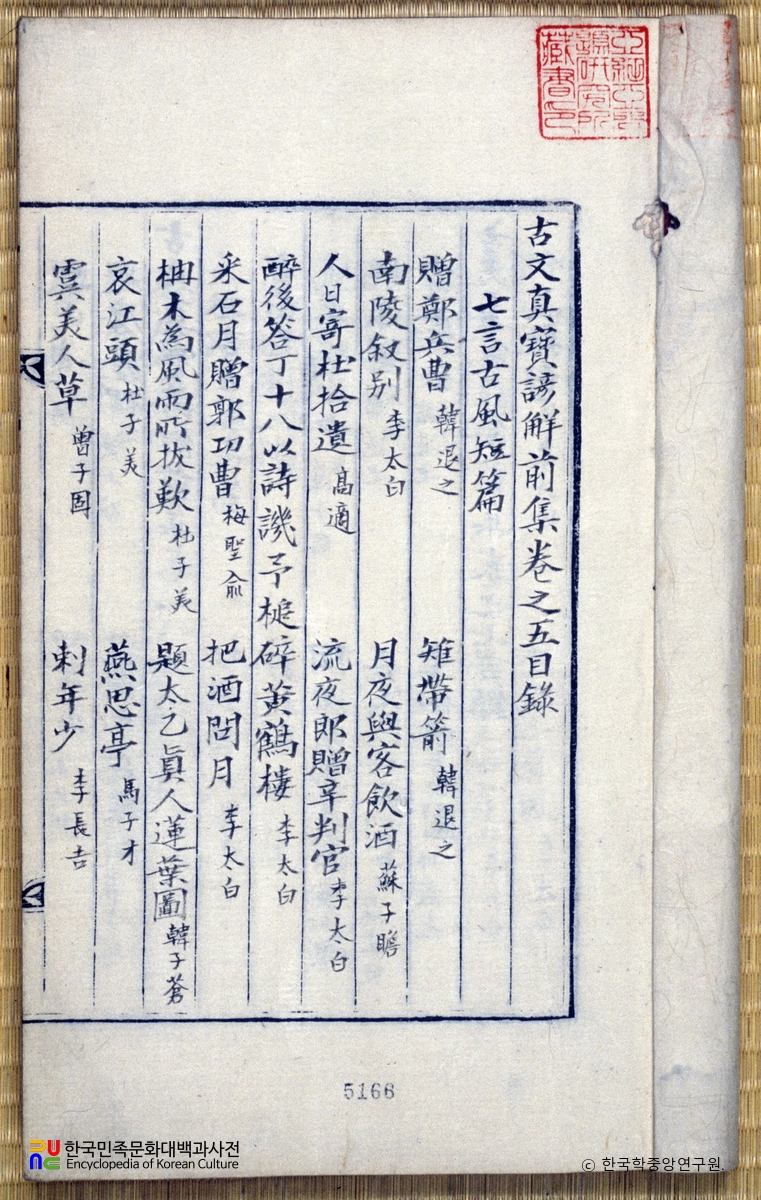 亞細亞問
題研究所
藏書印
古文真寶諺解前集卷之五目錄
七言古風短篇
贈鄭兵曹 韓退之 雉帶箭 韓退之
南陵叙别 李太白 月夜與客飲酒 蘇子瞻
人日寄杜拾遺 高適 流夜郎贈辛判官 李太白
醉後答丁十八以詩譏予槌碎黃鶴樓 李太白
采石月贈郭功曹 梅聖俞 把酒問月 李太白
柟木為風雨所拔歎 杜子美 題太乙眞人蓮葉圖 韓子蒼
哀江頭 杜子美 燕思亭 馬子才
虞美人草 曾子固 刺年少 李長吉
5166
한국민족문화대백과사전
Encyclopedia of Korean Culture
© 한국학중앙연구원